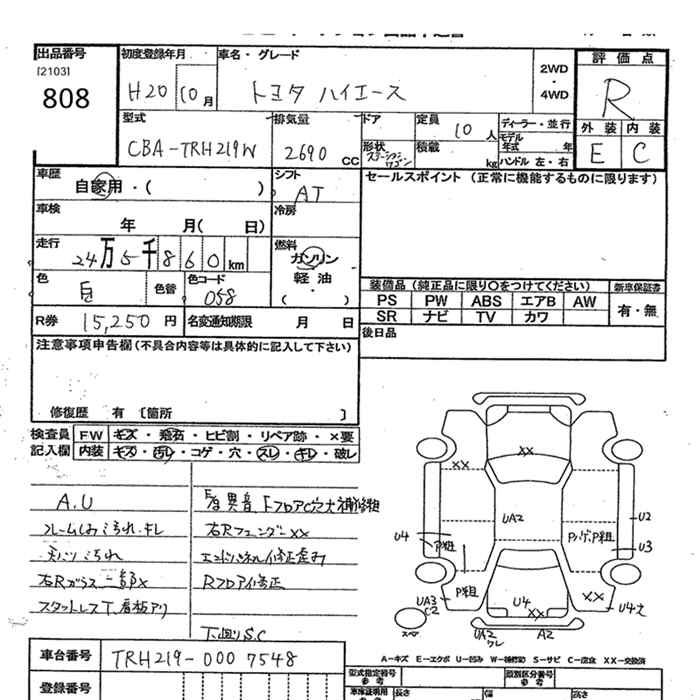 出品番号
[2103]
808
初度登録年月
H20 10月
車名・グレード
トヨタ ハイエース
2WD
・
4WD
評価点
R
外装 内装
E C
型式
CBA-TRH219W
排気量
2690 CC
ドア
形状 ステーションワゴン
定員
10人
積載
kg
ディーラー・並行
モデル年式 年
ハンドル 左・右
車歴
自家用・( )
シフト
AT
セールスポイント (正常に機能するものに限ります)
車検
年 月( 日)
冷房
走行
24万5千860km
燃料
ガソリン
軽油
・( )
色
白
色替
色コード
058
装備品(純正品に限り○をつけてください) 新車保証書
PS PW ABS エアB AW
SR ナビ TV カワ
有・無
R券 15,250円
名変通知期限 月 日
後日品
注意事項申告欄(不具合内容等は具体的に記入して下さい)
修復歴 有 〔箇所 〕
検査員記入欄
FW キズ・飛石・ヒビ割・リペア跡・×要
内装 キズ・汚レ・コゲ・穴・スレ・キレ・破レ
A.U
フレームしみ汚れ.キレ
天バリ汚れ
右Rガラス一部×
スタットレスT.看板アリ
右Rフェンダー××
エンドパネル修正歪み
Rフロア修正
下廻りS.C
××
××
UA2
U4
P粗
U2
U3
P粗
UA3
C2
U4
××
××
U4
スペア
UA2
ワレ
A2
A-キズ E-エクボ U-凹み W-補修跡 S-サビ C-腐食 XX-交換済
車台番号
TRH219-0007548
登録番号
型式指定番号
参考
類別区分番号
参考
車庫証明用
参考
長さ
幅
高さ